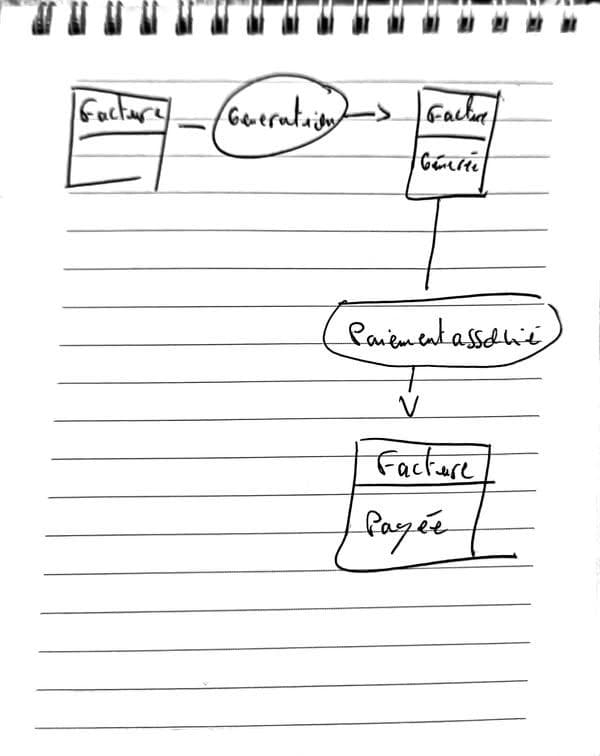 Facture
Génération
Facture
Générée
Paiement associé
Facture
Payée